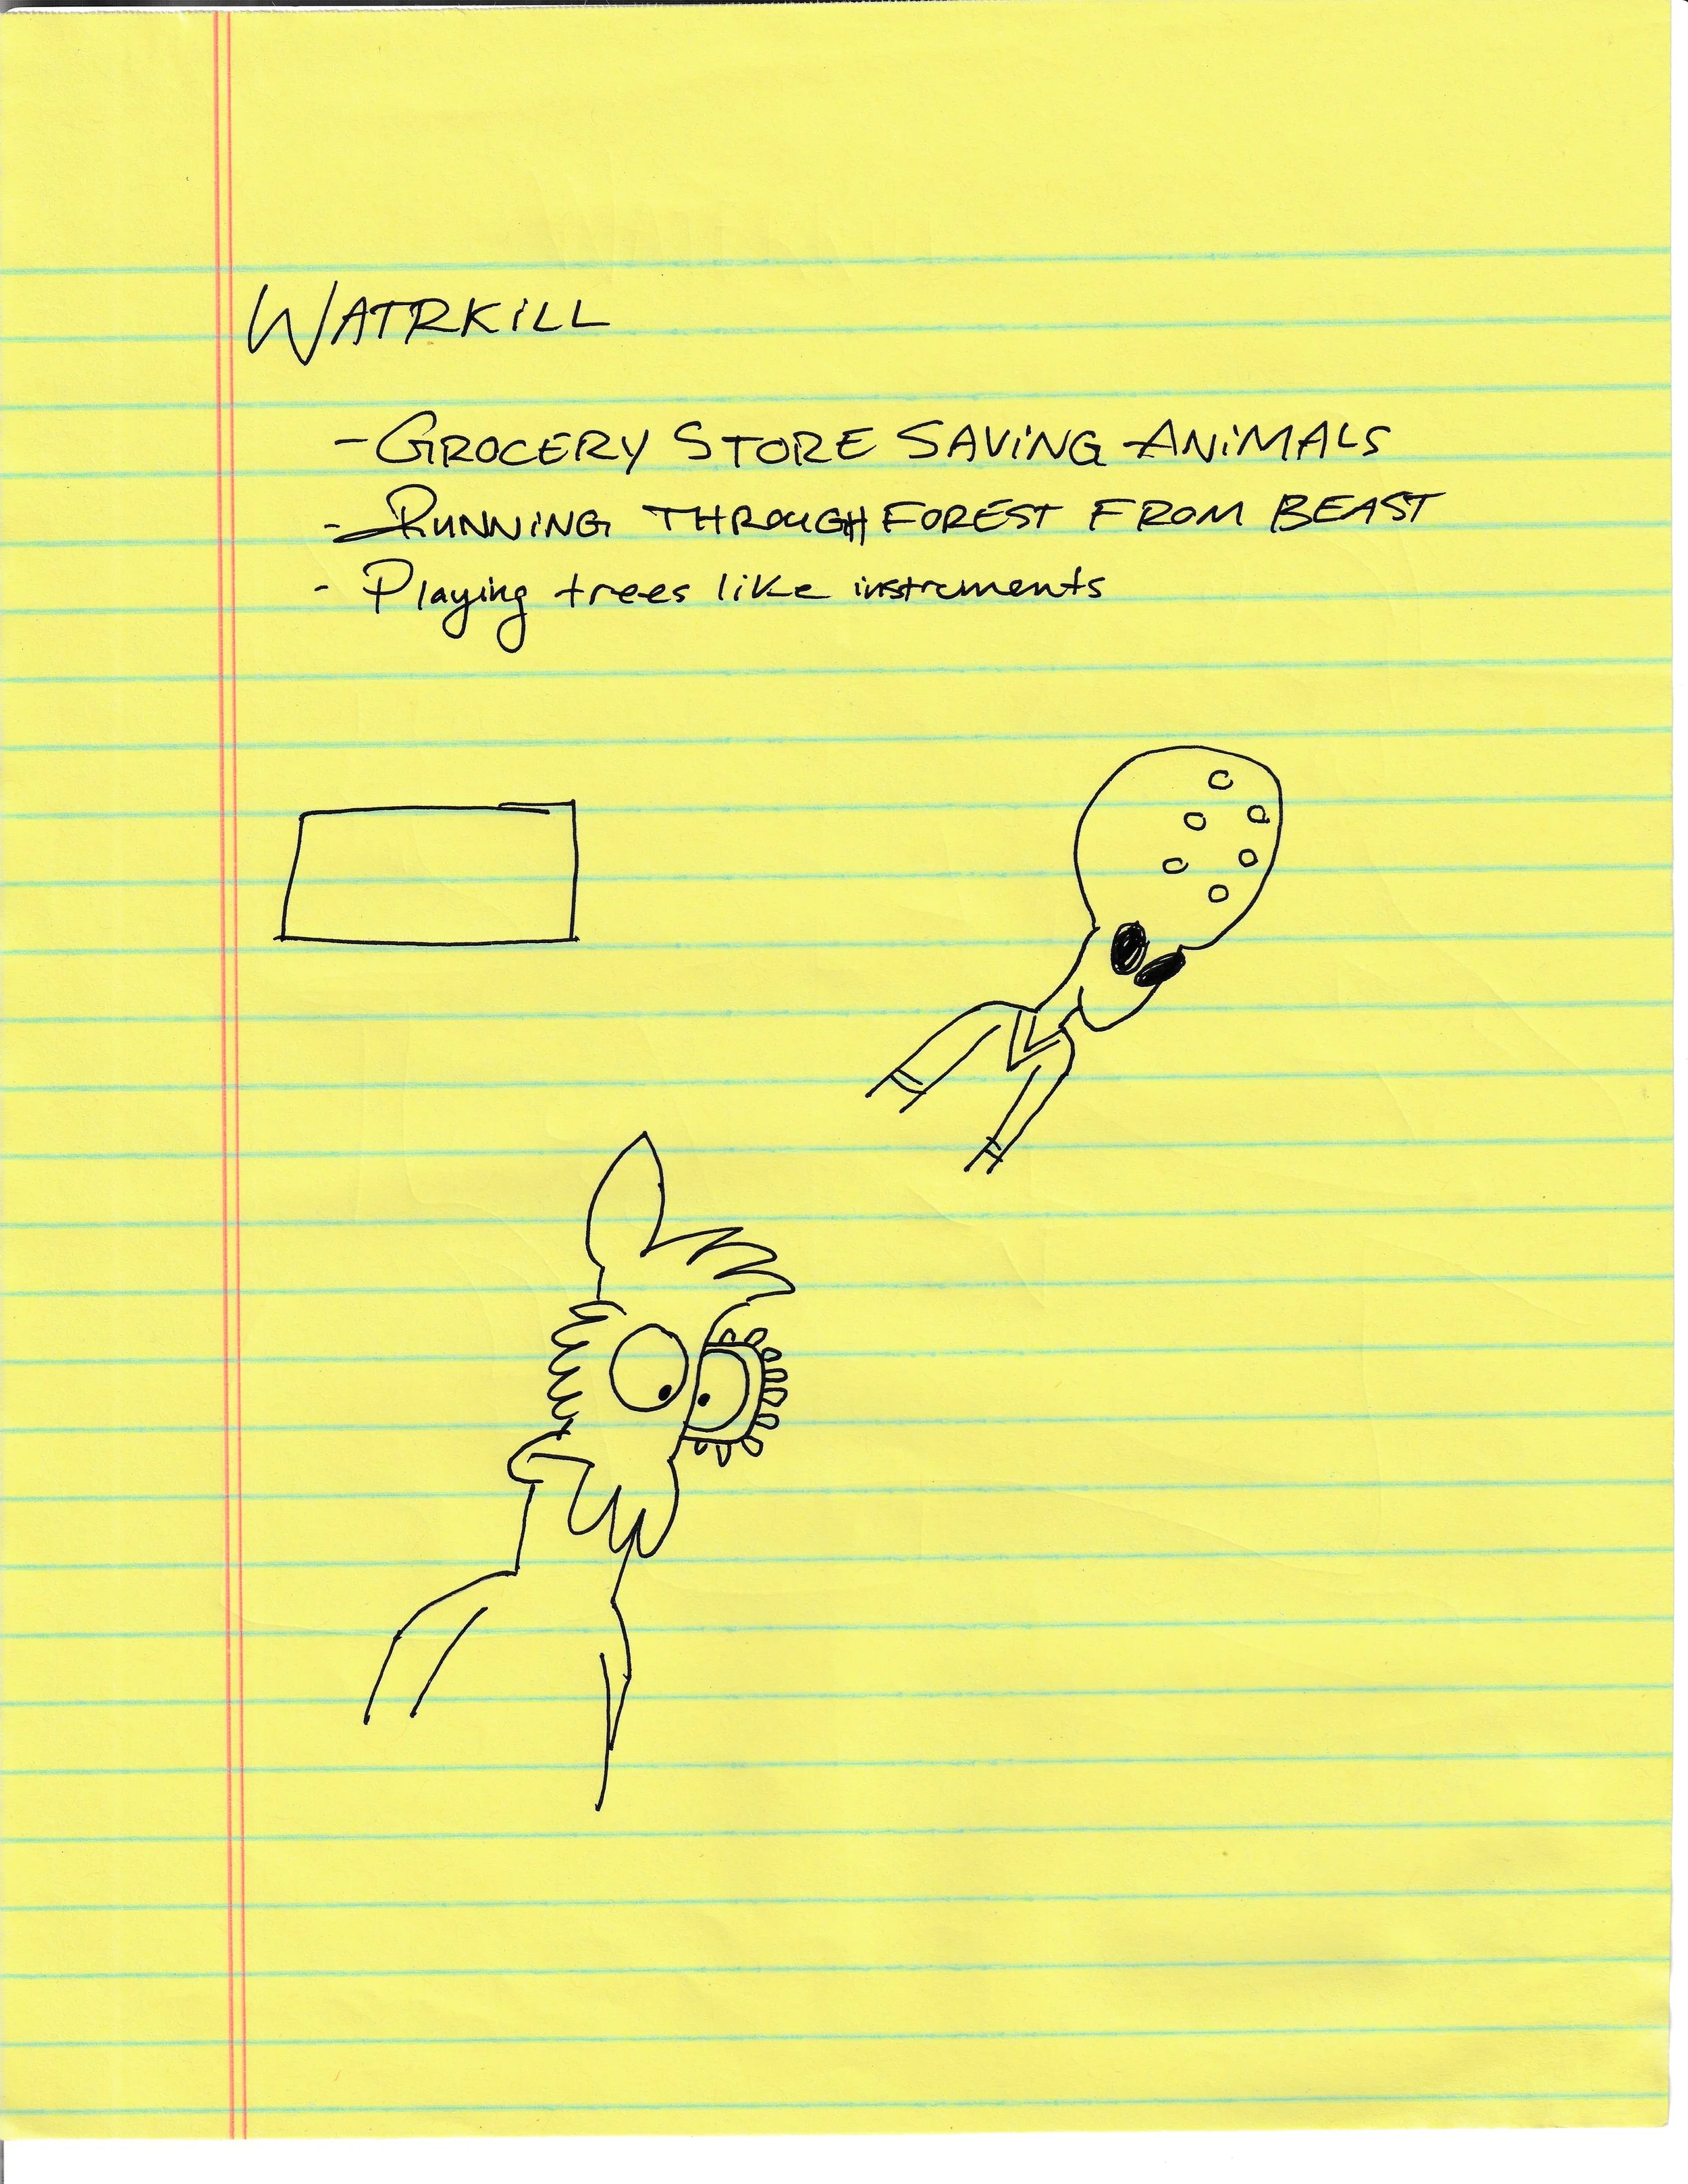 WATRKiLL
- GROCERY STORE SAViNG ANiMALS
- RUNNiNG THROUGH FOREST FROM BEAST
- Playing trees like instruments